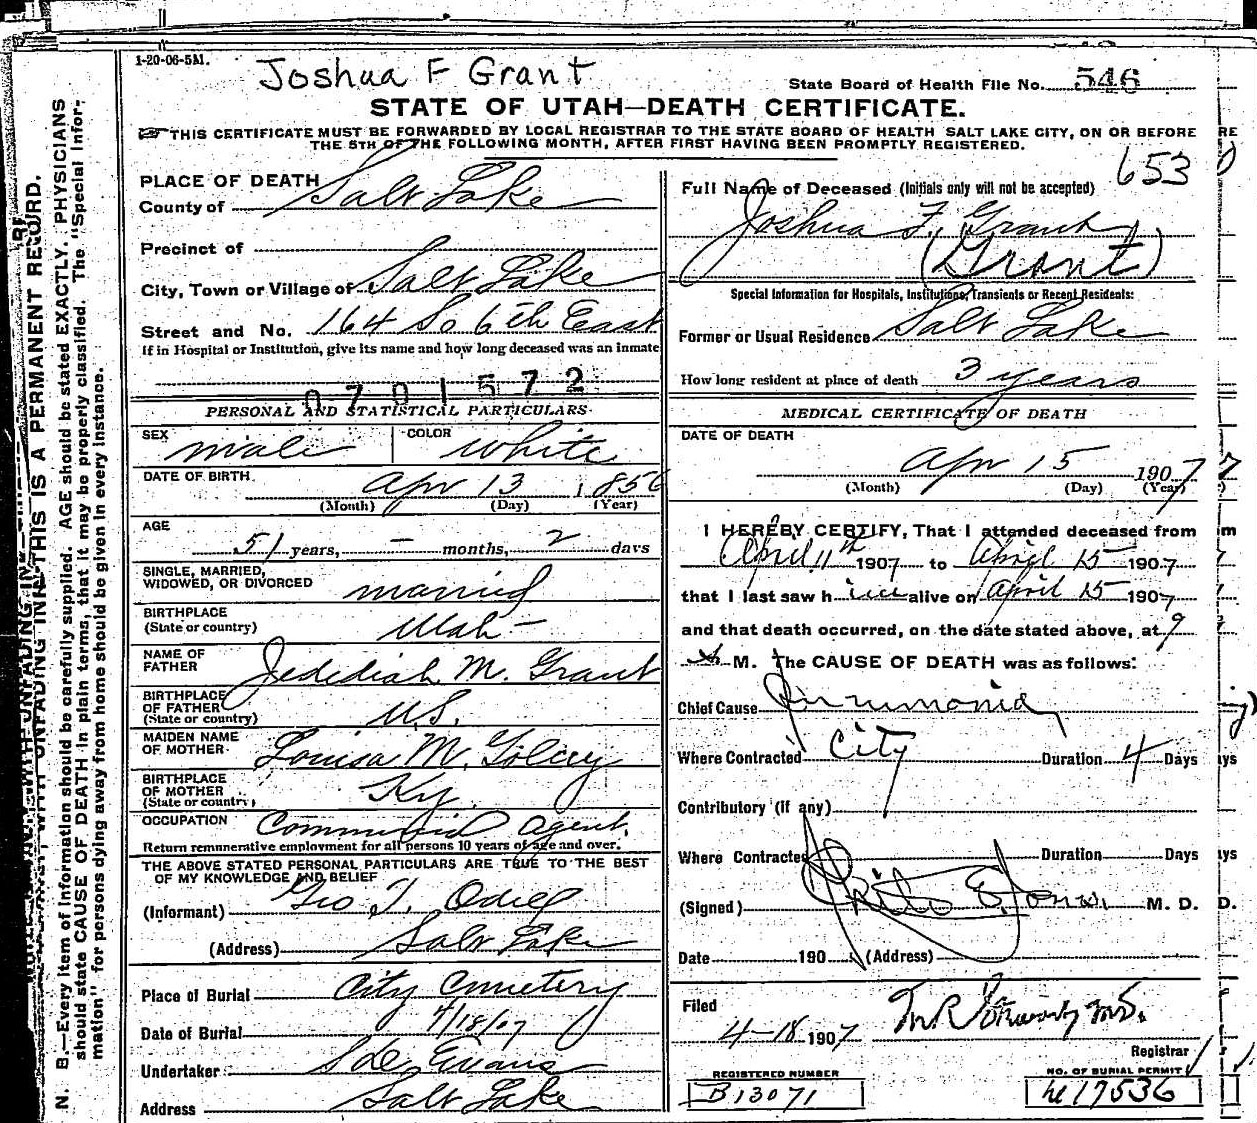 1-20-06-5M.
Joshua F Grant
State Board of Health File No. 546
STATE OF UTAH—DEATH CERTIFICATE.
THIS CERTIFICATE MUST BE FORWARDED BY LOCAL REGISTRAR TO THE STATE BOARD OF HEALTH SALT LAKE CITY, ON OR BEFORE
THE 5TH OF THE FOLLOWING MONTH, AFTER FIRST HAVING BEEN PROMPTLY REGISTERED.
653
PLACE OF DEATH
County of Salt Lake
Precinct of
City, Town or Village of Salt Lake
Street and No. 164 So 6th East
If in Hospital or Institution, give its name and how long deceased was an inmate
0701572
PERSONAL AND STATISTICAL PARTICULARS
SEX male COLOR white
DATE OF BIRTH Apr 13 1856
(Month) (Day) (Year)
AGE
51 years, — months, 2 days
SINGLE, MARRIED,
WIDOWED, OR DIVORCED married
BIRTHPLACE
(State or country) Utah —
NAME OF
FATHER Jedediah M. Grant
BIRTHPLACE
OF FATHER
(State or country) U.S.
MAIDEN NAME
OF MOTHER Louisa M. Golay
BIRTHPLACE
OF MOTHER
(State or country) Ky.
OCCUPATION Commercial Agent.
Return remunerative employment for all persons 10 years of age and over.
THE ABOVE STATED PERSONAL PARTICULARS ARE TRUE TO THE BEST
OF MY KNOWLEDGE AND BELIEF
(Informant) Geo T. Odell
(Address) Salt Lake
Place of Burial City Cemetery
Date of Burial 4/18/07
Undertaker S de Evans
Address Salt Lake
Full Name of Deceased (Initials only will not be accepted)
Joshua F. Grant
(Grant)
Special Information for Hospitals, Institutions, Transients or Recent Residents:
Former or Usual Residence Salt Lake
How long resident at place of death 3 years
MEDICAL CERTIFICATE OF DEATH
DATE OF DEATH
Apr 15 1907
(Month) (Day) (Year)
I HEREBY CERTIFY, That I attended deceased from
April 11th 1907 to April 15 1907
that I last saw him alive on April 15 1907
and that death occurred, on the date stated above, at 9
M. The CAUSE OF DEATH was as follows:
Chief Cause Pneumonia
Where Contracted City Duration 4 Days
Contributory (if any)
Where Contracted Duration Days
(Signed) M. D.
Date 190 (Address)
Filed
4-18 1907
Registrar
REGISTERED NUMBER
B 13071
NO. OF BURIAL PERMIT
17536
N. B.—Every item of Information should be carefully supplied. AGE should be stated EXACTLY. PHYSICIANS
should state CAUSE OF DEATH in plain terms, that it may be properly classified. The "Special Infor-
mation" for persons dying away from home should be given in every instance.
THIS IS A PERMANENT RECORD.